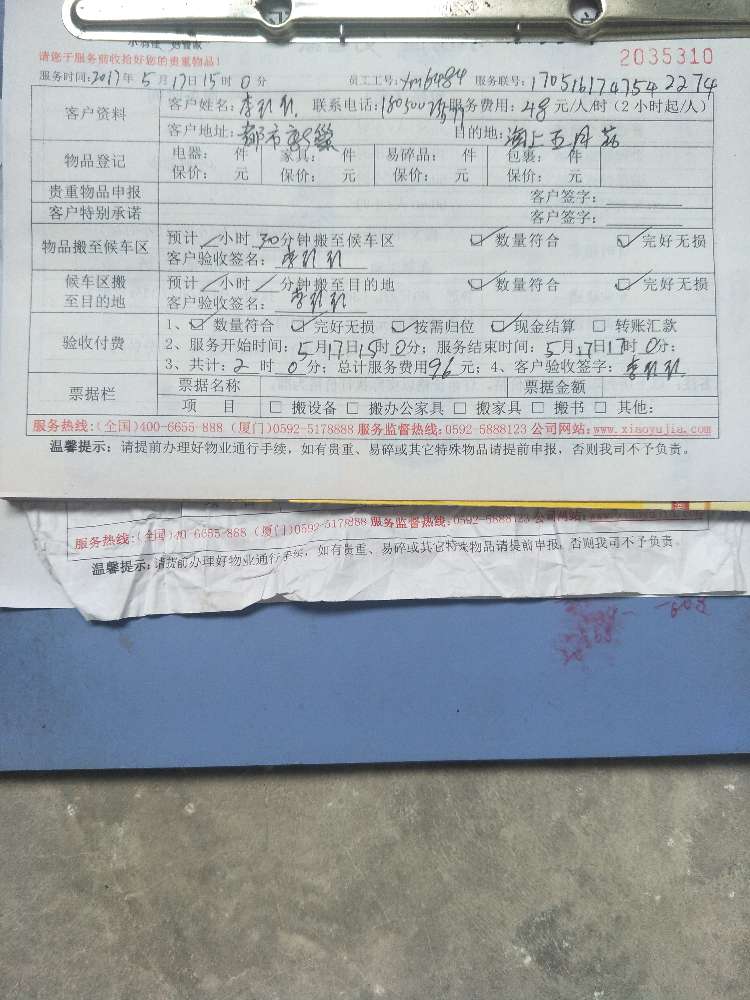 请您于服务前收拾好您的贵重物品! 2035310
服务时间:2017年5月17日15时0分 员工工号:ym6484 服务联号:1705161747542274
客户资料 客户姓名: 联系电话: 服务费用:48元/人/时(2小时起/人)
客户地址:都市新巢 目的地:
物品登记 电器: 件 家具: 件 易碎品: 件 包裹: 件
保价: 元 保价: 元 保价: 元 保价: 元
贵重物品申报 客户签字:
客户特别承诺 客户签字:
物品搬至候车区 预计/小时30分钟搬至候车区 ☑数量符合 ☑完好无损
客户验收签名:
候车区搬至目的地 预计/小时/分钟搬至目的地 ☑数量符合 ☑完好无损
客户验收签名:
验收付费 1、☑数量符合 ☑完好无损 ☑按需归位 ☑现金结算 □转账汇款
2、服务开始时间:5月17日15时0分;服务结束时间:5月17日17时0分;
3、共计:2时0分;总计服务费用96元;4、客户验收签字:
票据栏 票据名称 票据金额
项 目 □搬设备 □搬办公家具 □搬家具 □搬书 □其他:
服务热线:(全国)400-6655-888 (厦门)0592-5178888 服务监督热线:0592-5888123 公司网站:www.xiaoyujia.com
温馨提示:请提前办理好物业通行手续,如有贵重、易碎或其它特殊物品请提前申报,否则我司不予负责。
服务热线:(全国)40-6655-888 (厦门)0592-5178888 服务监督热线:0592-5888123 公司网站:
温馨提示:请提前办理好物业通行手续,如有贵重、易碎或其它特殊物品请提前申报,否则我司不予负责。